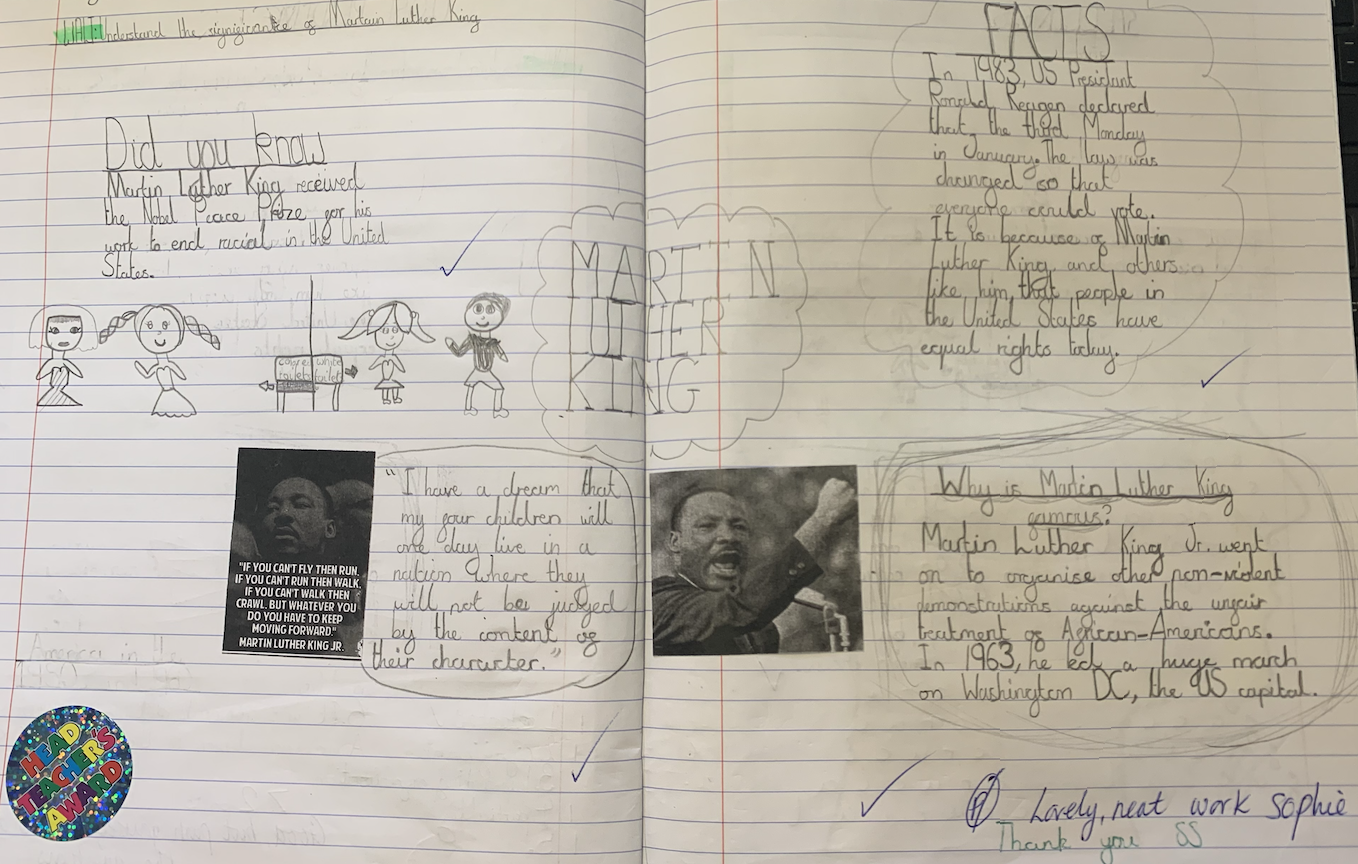 WALT: Understand the signigicance of Martain Luther King
Did you know
Martin Luther King received
the Nobel Peace Prize gor his
work to end racial in the United
States.
colored white
toilets toilet
MARTIN
LUTHER
KING
"IF YOU CAN'T FLY THEN RUN,
IF YOU CAN'T RUN THEN WALK,
IF YOU CAN'T WALK THEN
CRAWL. BUT WHATEVER YOU
DO YOU HAVE TO KEEP
MOVING FORWARD."
MARTIN LUTHER KING JR.
"I have a dream that
my gour children will
one day live in a
nation where they
will not be judged
by the content og
their character."
HEAD
TEACHER'S
AWARD
FACTS
In 1983, US Presidant
Ronald Reagen declared
that, the third Monday
in January. The law was
changed so that
everyone could vote.
It is because og Martin
Luther King and others
like him, that people in
the United States have
equal rights today.
Why is Martin Luther King
gamous?
Martin Luther King Jr. went
on to organise other non-violent
demonstrations against the ungair
treatment og Agrican-Americans.
In 1963, he led a huge march
on Washington DC, the US capital.
Lovely, neat work Sophie
Thank you SS